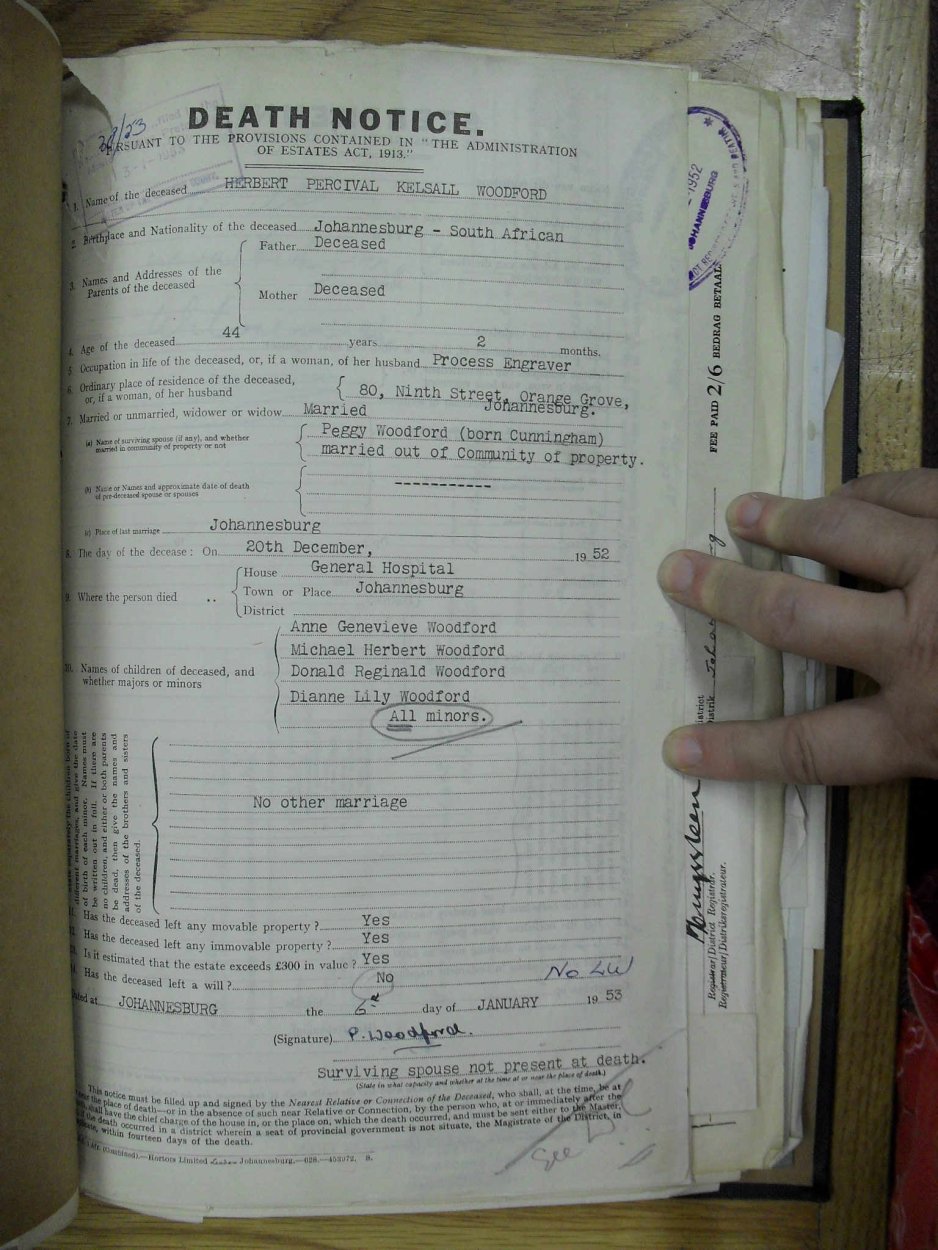 DEATH NOTICE.
PURSUANT TO THE PROVISIONS CONTAINED IN "THE ADMINISTRATION
OF ESTATES ACT, 1913."
1. Name of the deceased HERBERT PERCIVAL KELSALL WOODFORD
2. Birthplace and Nationality of the deceased Johannesburg - South African
3. Names and Addresses of the Parents of the deceased
Father Deceased
Mother Deceased
4. Age of the deceased 44 years 2 months.
5 Occupation in life of the deceased, or, if a woman, of her husband Process Engraver
6. Ordinary place of residence of the deceased, or, if a woman, of her husband
80, Ninth Street, Orange Grove,
Johannesburg.
7. Married or unmarried, widower or widow Married
(a) Name of surviving spouse (if any), and whether married in community of property or not
Peggy Woodford (born Cunningham)
married out of Community of property.
(b) Name or Names and approximate date of death of pre-deceased spouse or spouses
-----------
(c) Place of last marriage Johannesburg
8. The day of the decease: On 20th December, 1952
9. Where the person died ..
House General Hospital
Town or Place Johannesburg
District
10. Names of children of deceased, and whether majors or minors
Anne Genevieve Woodford
Michael Herbert Woodford
Donald Reginald Woodford
Dianne Lily Woodford
All minors.
different marriages, and give the date
of birth of each minor. Names must
be written out in full. If there are
no children, and either or both parents
be dead, then give the names and
addresses of the brothers and sisters
of the deceased.
No other marriage
Has the deceased left any movable property? Yes
Has the deceased left any immovable property? Yes
Is it estimated that the estate exceeds £300 in value? Yes
Has the deceased left a will? No
Dated at JOHANNESBURG the 6 day of JANUARY 1953
(Signature) P. Woodford.
Surviving spouse not present at death.
(State in what capacity and whether at the time at or near the place of death.)
This notice must be filled up and signed by the Nearest Relative or Connection of the Deceased, who shall, at the time, be at
near the place of death—or in the absence of such near Relative or Connection, by the person who, at or immediately after the
shall have the chief charge of the house in, or the place on, which the death occurred, and must be sent either to the Master,
the death occurred in a district wherein a seat of provincial government is not situate, the Magistrate of the District, in
within fourteen days of the death.
(Combined).—Hortors Limited Johannesburg.—628.—453072. B.
See
JOHANNESBURG
1952
FEE PAID 2/6 BEDRAG BETAAL
Registrar/District Registrar.
Registrateur/Distriksregistrateur.